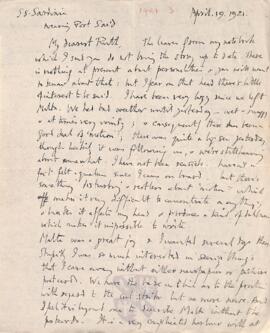 S.S. Sardinia
nearing Port Said
1921 3
April. 19. 1921.
My dearest Ruth, The leaves from my notebook
which I send you do not bring the story up to date. There
is nothing at present about personalities & you will want
to know about that; but I fear on that head there's little
of interest to be said. I have been very lazy since we left
Malta. We had bad weather until yesterday – wet &
at times very windy; & consequently there has been a
good deal of 'motion'; there was quite a big sea yesterday,
though luckily it was following us, & we're still
about somewhat. I have not been seasick. haven't in
fact felt a qualm since I came on board. but there's
something disturbing & restless about 'motion' which
make it very difficult to concentrate on anything;
& makes it affects my head & produces a kind of
which makes it impossible to write.
Malta was a great joy & I wanted several days there.
Stupidly I was so much interested in seeing things
that I came away without either newspapers or picture
postcards. We have the news in brief as to the position
with regard to the coal strike but no more news. And
I feel it is beyond me to describe Malta without the
postcards. It is a very complicated harbour with all